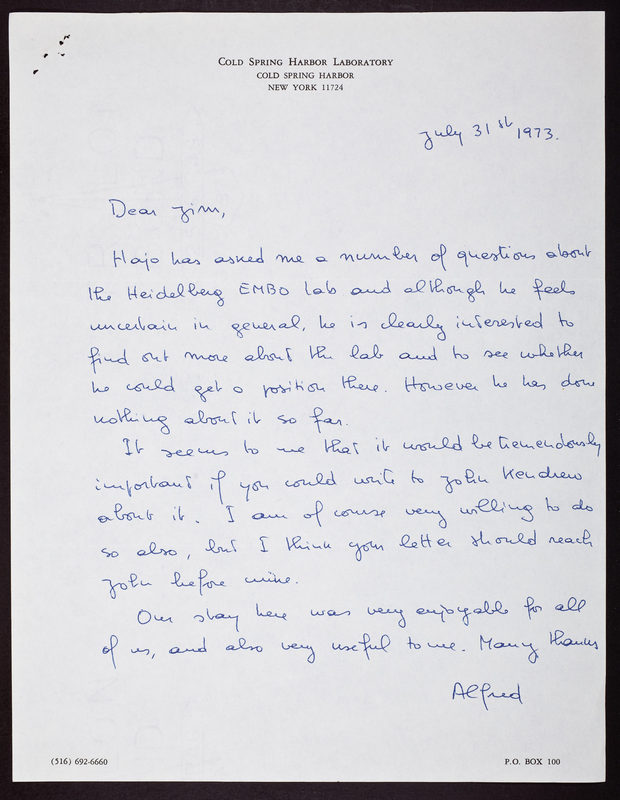 COLD SPRING HARBOR LABORATORY
COLD SPRING HARBOR
NEW YORK 11724
July 31st 1973.
Dear Jim,
Hajo has asked me a number of questions about
the Heidelberg EMBO lab and although he feels
uncertain in general, he is clearly interested to
find out more about the lab and to see whether
he could get a position there. However he has done
nothing about it so far.
It seems to me that it would be tremendously
important if you could write to John Kendrew
about it. I am of course very willing to do
so also, but I think your letter should reach
John before mine.
Our stay here was very enjoyable for all
of us, and also very useful to me. Many thanks
Alfred
(516) 692-6660
P.O. BOX 100